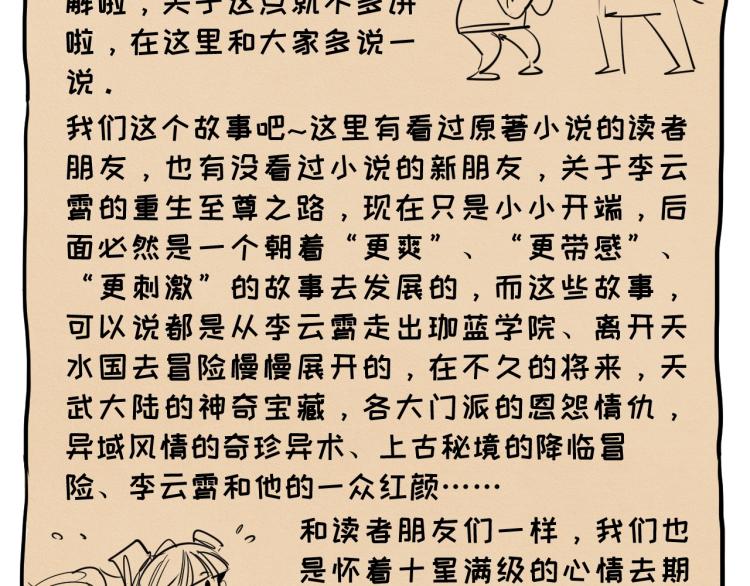 解啦，关于这点就不多讲
啦，在这里和大家多说一
说。
我们这个故事吧~这里有看过原著小说的读者
朋友，也有没看过小说的新朋友，关于李云
霄的重生至尊之路，现在只是小小开端，后
面必然是一个朝着“更爽”、“更带感”、
“更刺激”的故事去发展的，而这些故事，
可以说都是从李云霄走出珈蓝学院、离开天
水国去冒险慢慢展开的，在不久的将来，天
武大陆的神奇宝藏，各大门派的恩怨情仇，
异域风情的奇珍异术、上古秘境的降临冒
险、李云霄和他的一众红颜……
和读者朋友们一样，我们也
是怀着十星满级的心情去期